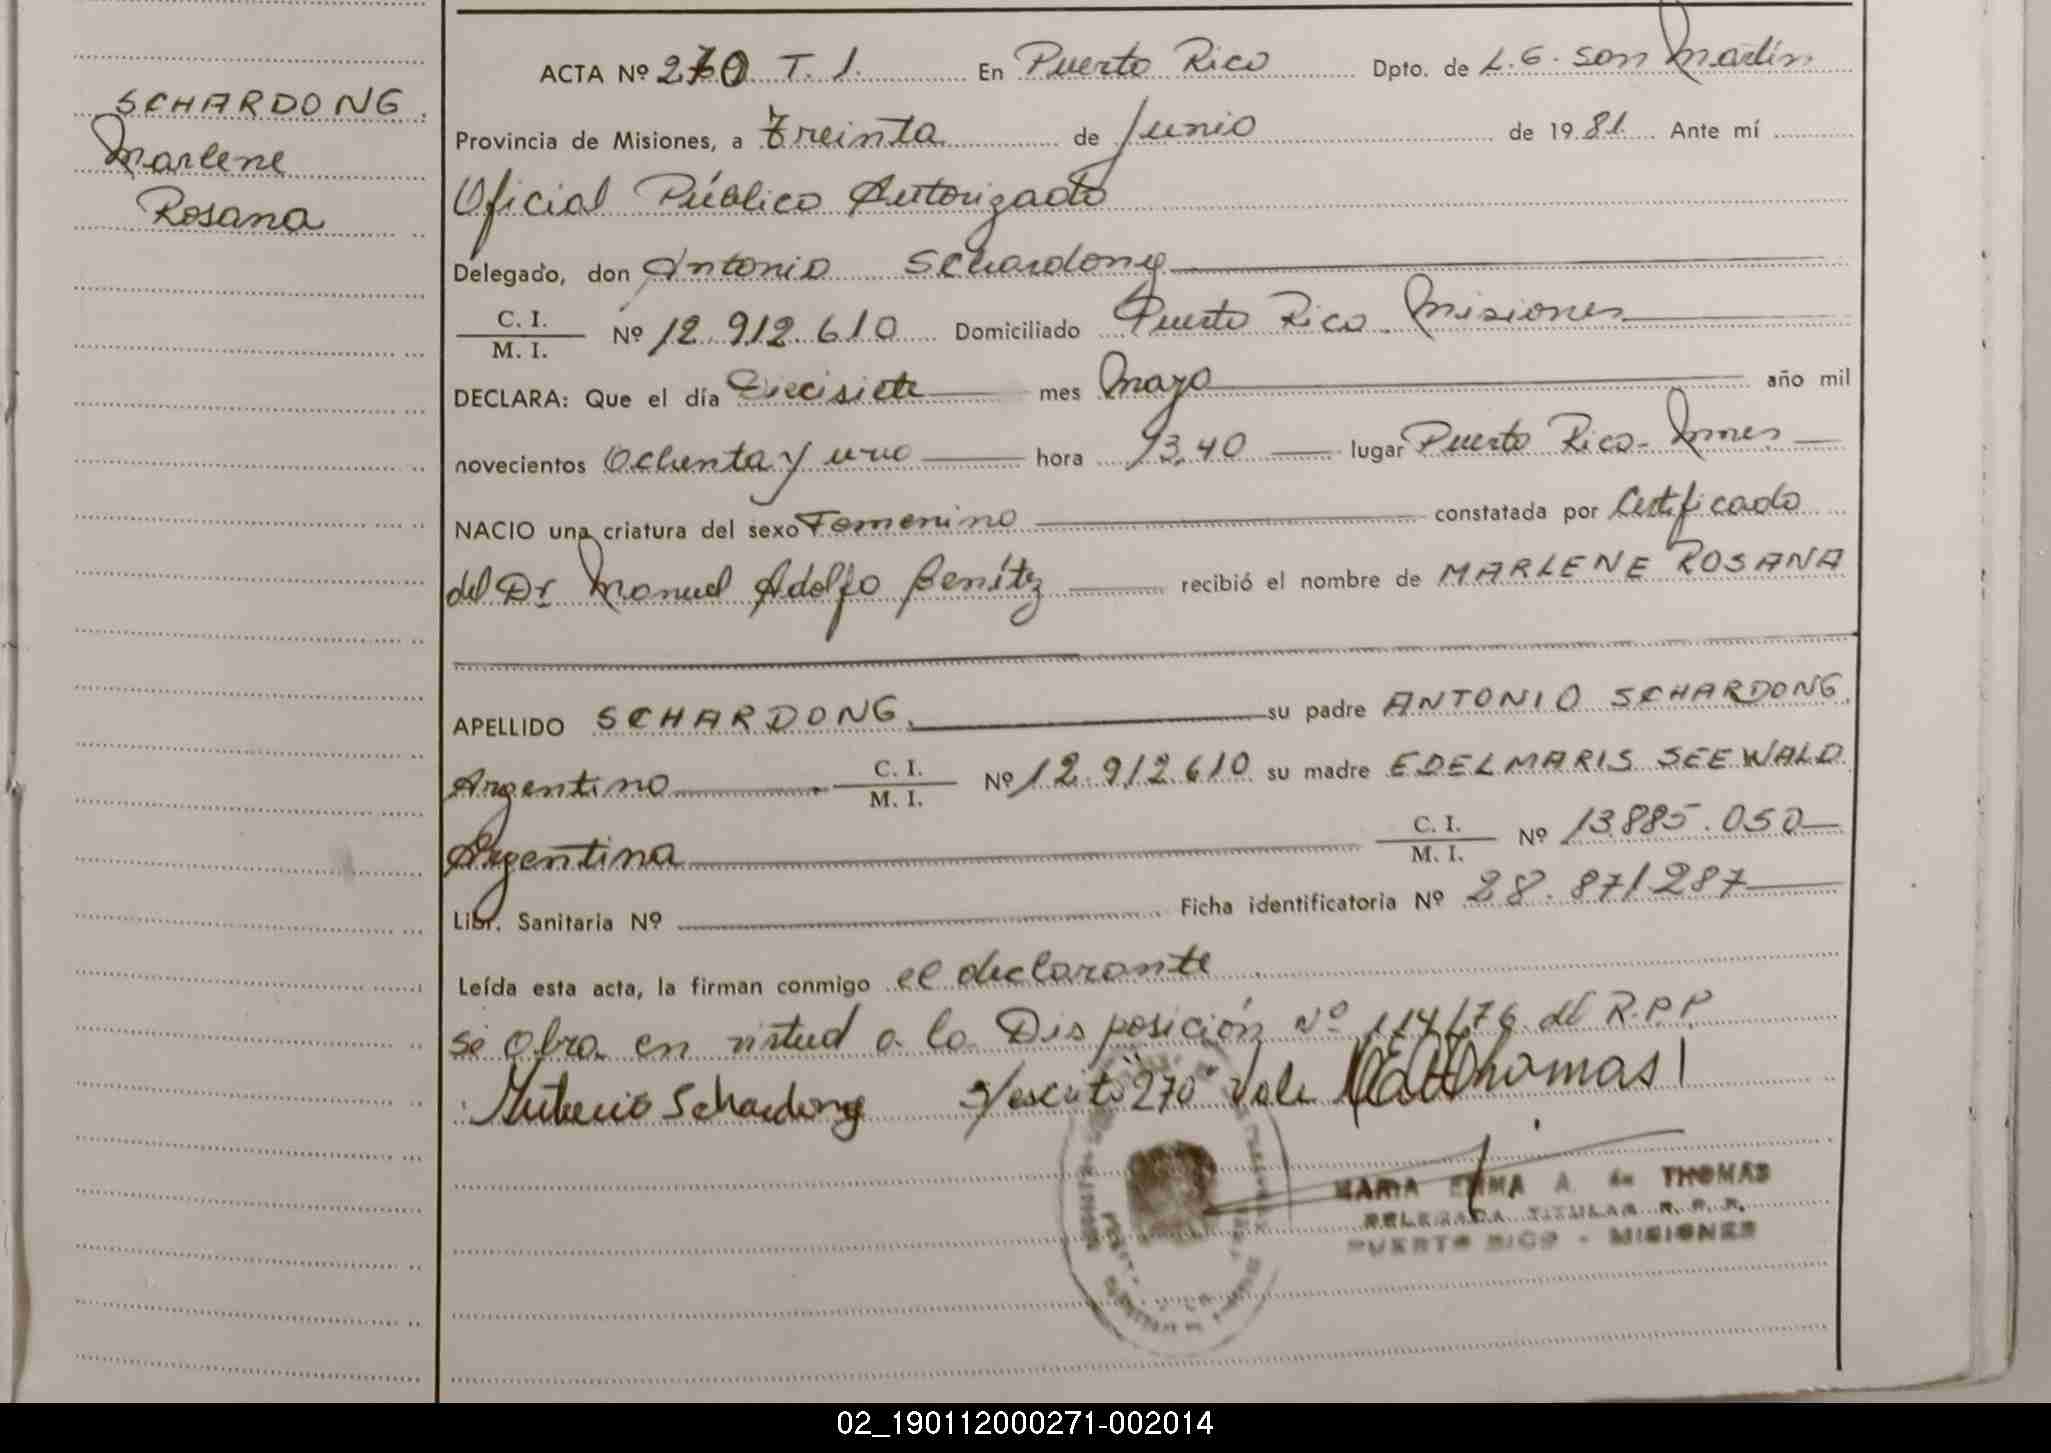 SCHARDONG.
Marlene
Rosana
ACTA Nº 270 T. I. En Puerto Rico Dpto. de L. G. San Martín
Provincia de Misiones, a treinta de Junio de 1981. Ante mí
Oficial Público Autorizado
Delegado, don Antonio Schardong
C. I. / M. I. Nº 12.912.610 Domiciliado Puerto Rico. Misiones
DECLARA: Que el día Diecisiete mes Mayo año mil
novecientos Ochenta y uno hora 13,40 lugar Puerto Rico- Mnes
NACIO una criatura del sexo Femenino constatada por Certificado
del Dr. Manuel Adolfo Benítez recibió el nombre de MARLENE ROSANA
APELLIDO SCHARDONG. su padre ANTONIO SCHARDONG.
Argentino C. I. / M. I. Nº 12.912.610 su madre EDELMARIS SEEWALD.
Argentina C. I. / M. I. Nº 13.885.050
Libr. Sanitaria Nº Ficha identificatoria Nº 28.871287
Leída esta acta, la firman conmigo el declarante
se obra en virtud a la Disposición Nº 114/76 del R.P.P
Antonio Schardong 270 Vale Thomas
MARIA EMMA A. de THOMAS
DELEGADA TITULAR R. P. P.
PUERTO RICO - MISIONES
02_190112000271-002014